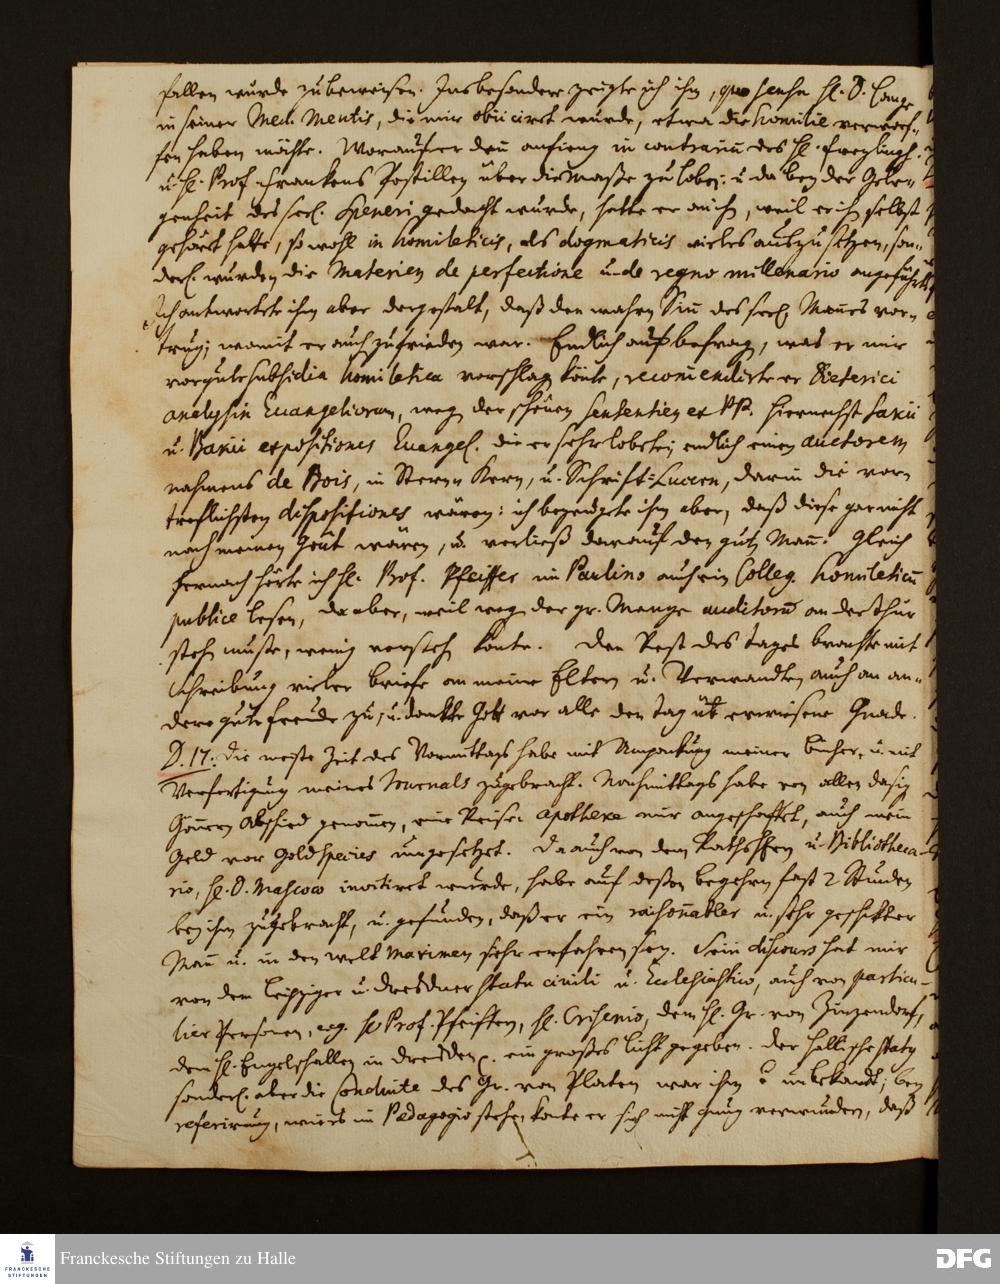 fallen würde zu beweisen. Insbesondere zeigte ich ihm, quo sensu H. D. Lange
in seiner Med. Mentis, die mir obiicirt wurde, etwa die Homilie verworf-
fen haben möchte. Worauf er den anfieng in contrarium des H. Freylingh.
u. H. Prof. Franckens Postillen über die Maße zu loben: u. da bey der Gele-
genheit des seel. Speneri gedacht wurde, hatte er auch, weil er ihn selbst
gehört hatte, so wohl in homileticis, als dogmaticis vieles auszusetzen, son-
derl. wurden die Materien de perfectione u. de regno millenario angeführt.
Ich antwortete ihm aber dergestalt, daß den wahren Sinn des seel. Mannes vor-
trug; womit er auch zufrieden war. Endlich auf befrag, was er mir
vor gute subsidia homiletica vorschlag. könte, recommendirte er Dieterici
analysin Euangeliorum, weg. der schönen sententien ex PP. hiernechst
u. expositiones Euangel. die er sehr lobete; endlich einen auctorem
nahmens de Bois, in Stern u. Kern, u. Schrift-Lucern, darin die vor-
treflichsten dispositiones wären: ich bezeugete ihm aber, daß diese gar nicht
nach meinem Goût wären, u. verließ darauf den guten Mann. Gleich
hernach hörte ich H. Prof. Pfeiffer im Paulino auch ein Colleg. homileticum
publice lesen, da aber, weil weg. der gr. Menge auditorum an der Thür
steh. muste, wenig versteh. konte. Den Rest des Tages brachte mit
Schreibung vieler briefe an meine Eltern u. Verwandten auch an an-
dere gute freunde zu, u. danckte Gott vor alle den Tag über erwiesene Gnade.
D. 17. die meiste Zeit des Vormittags habe mit Umpackung meiner bücher, u. mit
Verfertigung meines Journals zugebracht. Nachmittags habe von allen dasig.
Gönnern Abschied genommen, eine Reise-apotheke mir angeschaffet, auch mein
Geld vor Goldspecies umgesetzet. Da auch von dem Rathsherrn u. Bibliotheca-
rio, H. D. Mascovio invitiret wurde, habe auf deßen begehren fast 2 Stunden
bey ihm zugebracht, u. gefunden, daß er ein raisonabler u. sehr geschickter
Mann u. in den welt Maximen sehr erfahren sey. Sein discours hat mir
von dem Leipziger u. Dresdner statu civili u. Ecclesiastico, auch von particu-
lier Personen, e.g. H. Prof. Pfeiffern, H. dem H. Gr. von Zinzendorf,
den H. Engelschallen in Dresden ein großes licht gegeben. Der Hallische status
sonderl. aber die Conduite des Gr. von Platen war ihm unbekandt; bey
referirung, wie es im Pædagogio stehe, konte er sich nicht gnug verwundern, daß
Franckesche Stiftungen zu Halle
FRANCKESCHE
STIFTUNGEN
DFG